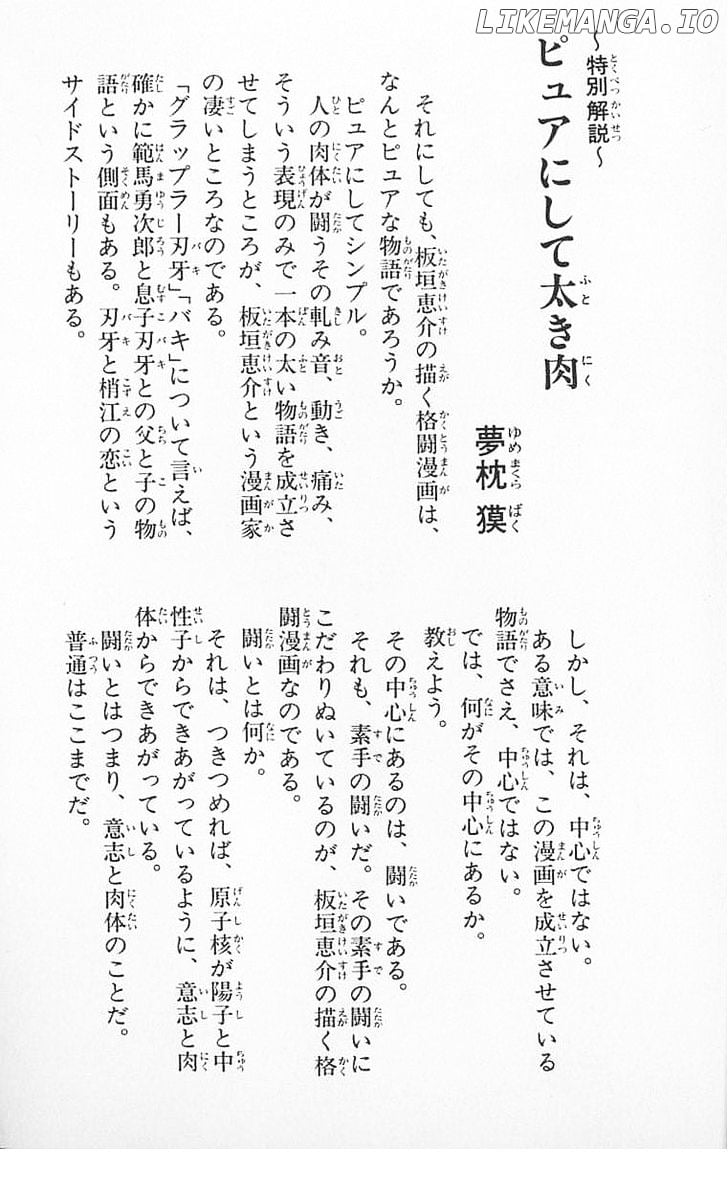 LIKEMANGA.IO
～特別解説～
ピュアにして太き肉
夢枕 獏
それにしても、板垣恵介の描く格闘漫画は、
なんとピュアな物語であろうか。
ピュアにしてシンプル。
人の肉体が闘うその軋み音、動き、痛み、
そういう表現のみで一本の太い物語を成立さ
せてしまうところが、板垣恵介という漫画家
の凄いところなのである。
「グラップラー刃牙」「バキ」について言えば、
確かに範馬勇次郎と息子刃牙との父と子の物
語という側面もある。刃牙と梢江の恋という
サイドストーリーもある。
しかし、それは、中心ではない。
ある意味では、この漫画を成立させている
物語でさえ、中心ではない。
では、何がその中心にあるか。
教えよう。
その中心にあるのは、闘いである。
それも、素手の闘いだ。その素手の闘いに
こだわりぬいているのが、板垣恵介の描く格
闘漫画なのである。
闘いとは何か。
それは、つきつめれば、原子核が陽子と中
性子からできあがっているように、意志と肉
体からできあがっている。
闘いとはつまり、意志と肉体のことだ。
普通はここまでだ。